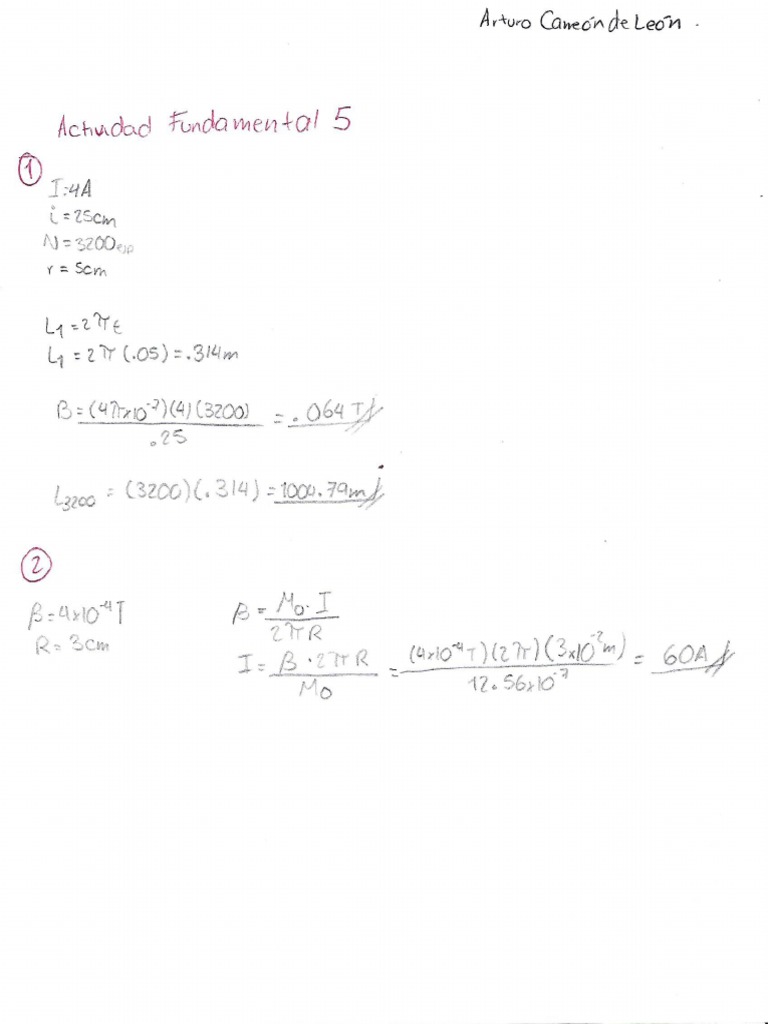 Arturo Carreón de León.
Actividad Fundamental 5
①
I:4A
i=25cm
N=3200esp
r=5cm
L₁=2πt
L₁=2π(.05)=.314m
B=(4π×10⁻⁷)(4)(3200)/.25=.064T
L₃₂₀₀=(3200)(.314)=1004.79m
②
β=4×10⁻⁴T
R=3cm
β=M₀·I/2πR
I=β·2πR/M₀=(4×10⁻⁴T)(2π)(3×10⁻²m)/12.56×10⁻⁷=60A